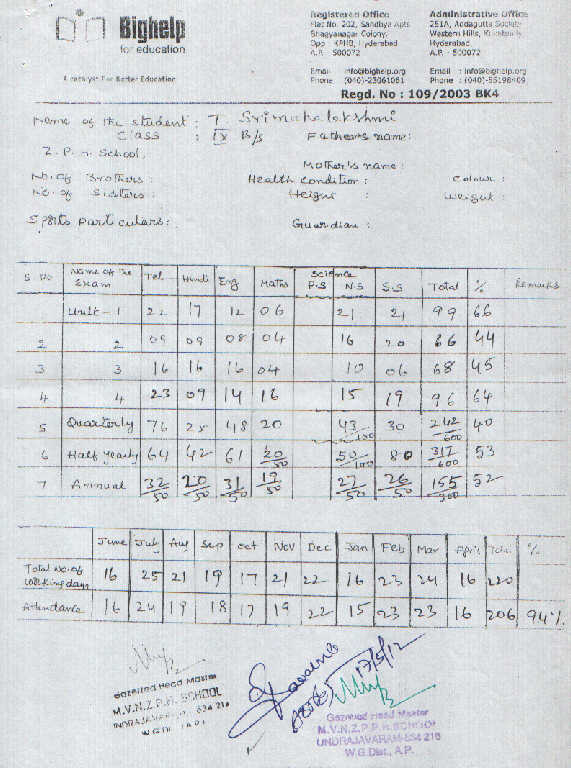 Bighelp
for education
A catalyst For Better Education
Registered Office
Flat No. 202, Sandhya Apts
Bhagyanagar Colony,
Opp KPHB, Hyderabad
A.P. - 500072
Email info@bighelp.org
Phone (040)-23061061
Administrative Office
251A, Addagutta Society
Western Hills, Kukatpally
Hyderabad
A.P. - 500072
Email : info@bighelp.org
Phone : (040)-55198409
Regd. No : 109/2003 BK4
Name of the student : T. Srimahalakshmi
Class : IX B/s Father's name:
Z.P.H. School.
Mother's name :
No. of Brothers : Health Condition : Colour :
No. of Sisters : Height : Weight :
Sports particulars : Guardian :
S.No Name of the Exam Tel Hindi Eng Maths Science P.S N.S S.S Total % Remarks
Unit - 1 22 17 12 06 21 21 99 66
2 2 09 09 08 04 16 20 66 44
3 3 16 16 16 04 10 06 68 45
4 4 23 09 14 16 15 19 96 64
5 Quarterly 76 25 48 20 43/100 30 242/600 40
6 Half yearly 64 42 61 20/50 50/100 80 317/600 53
7 Annual 32/50 20/50 31/50 19/50 27/50 26/50 155/300 52
June July Aug Sep Oct Nov Dec Jan Feb Mar April Total %
Total No. of Working days 16 25 21 19 17 21 22 16 23 24 16 220
Attendance 16 24 19 18 17 19 22 15 23 23 16 206 94%
17/5/12
Gazetted Head Master
M.V.N.Z.P.H. SCHOOL
UNDRAJAVARAM - 534 216
W.G.Dt.
Gazetted Head Master
M.V.N.Z.P.P.H. SCHOOL
UNDRAJAVARAM-534 216
W.G.Dist., A.P.